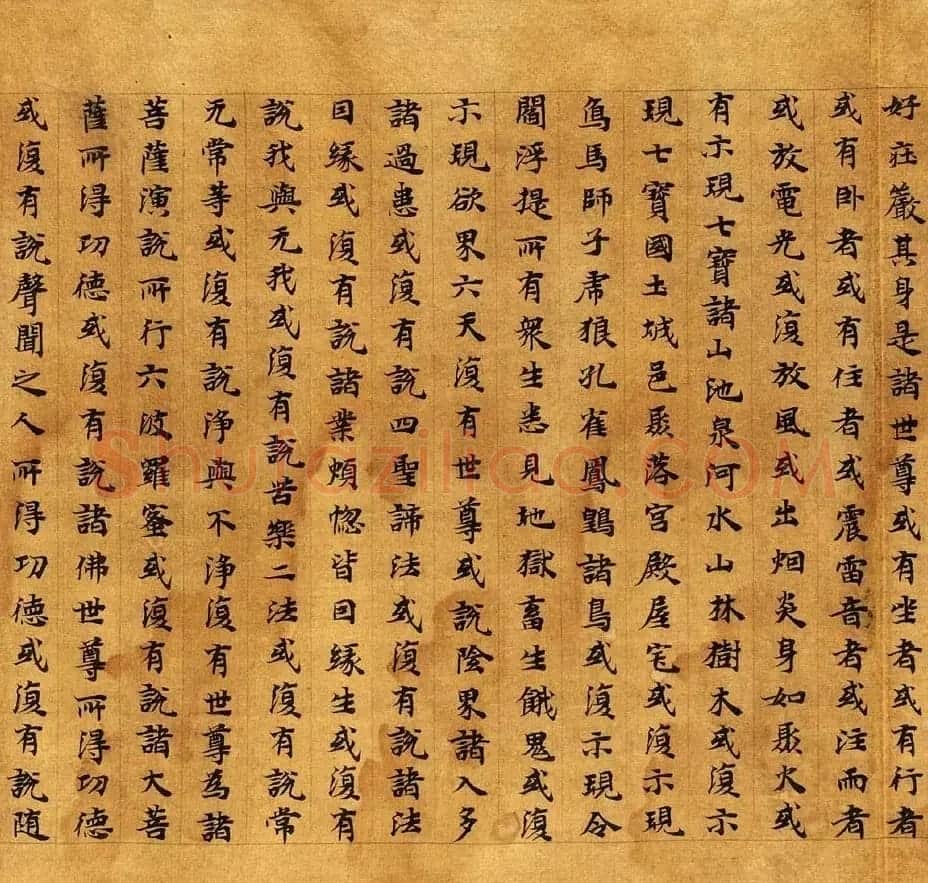 好莊嚴其身是諸世尊或有坐者或有行者
或有卧者或有住者或震雷音者或注雨者
或放電光或復放風或出烟炎身如聚火或
有示現七寶諸山池泉河水山林樹木或復示
現七寶國土城邑聚落宮殿屋宅或復示現
象馬師子虎狼孔雀鳳凰諸鳥或復示現令
閻浮提所有衆生悉見地獄畜生餓鬼或復
示現欲界六天復有世尊或說陰界諸入多
諸過患或復有說四聖諦法或復有說諸法
因緣或復有說諸業煩惱皆因緣生或復有
說我與无我或復有說苦樂二法或復有說常
无常等或復有說淨與不淨復有世尊為諸
菩薩演說所行六波羅蜜或復有說諸大菩
薩所得功德或復有說諸佛世尊所得功德
或復有說聲聞之人所得功德或復有說随
Shufaziliao.COM